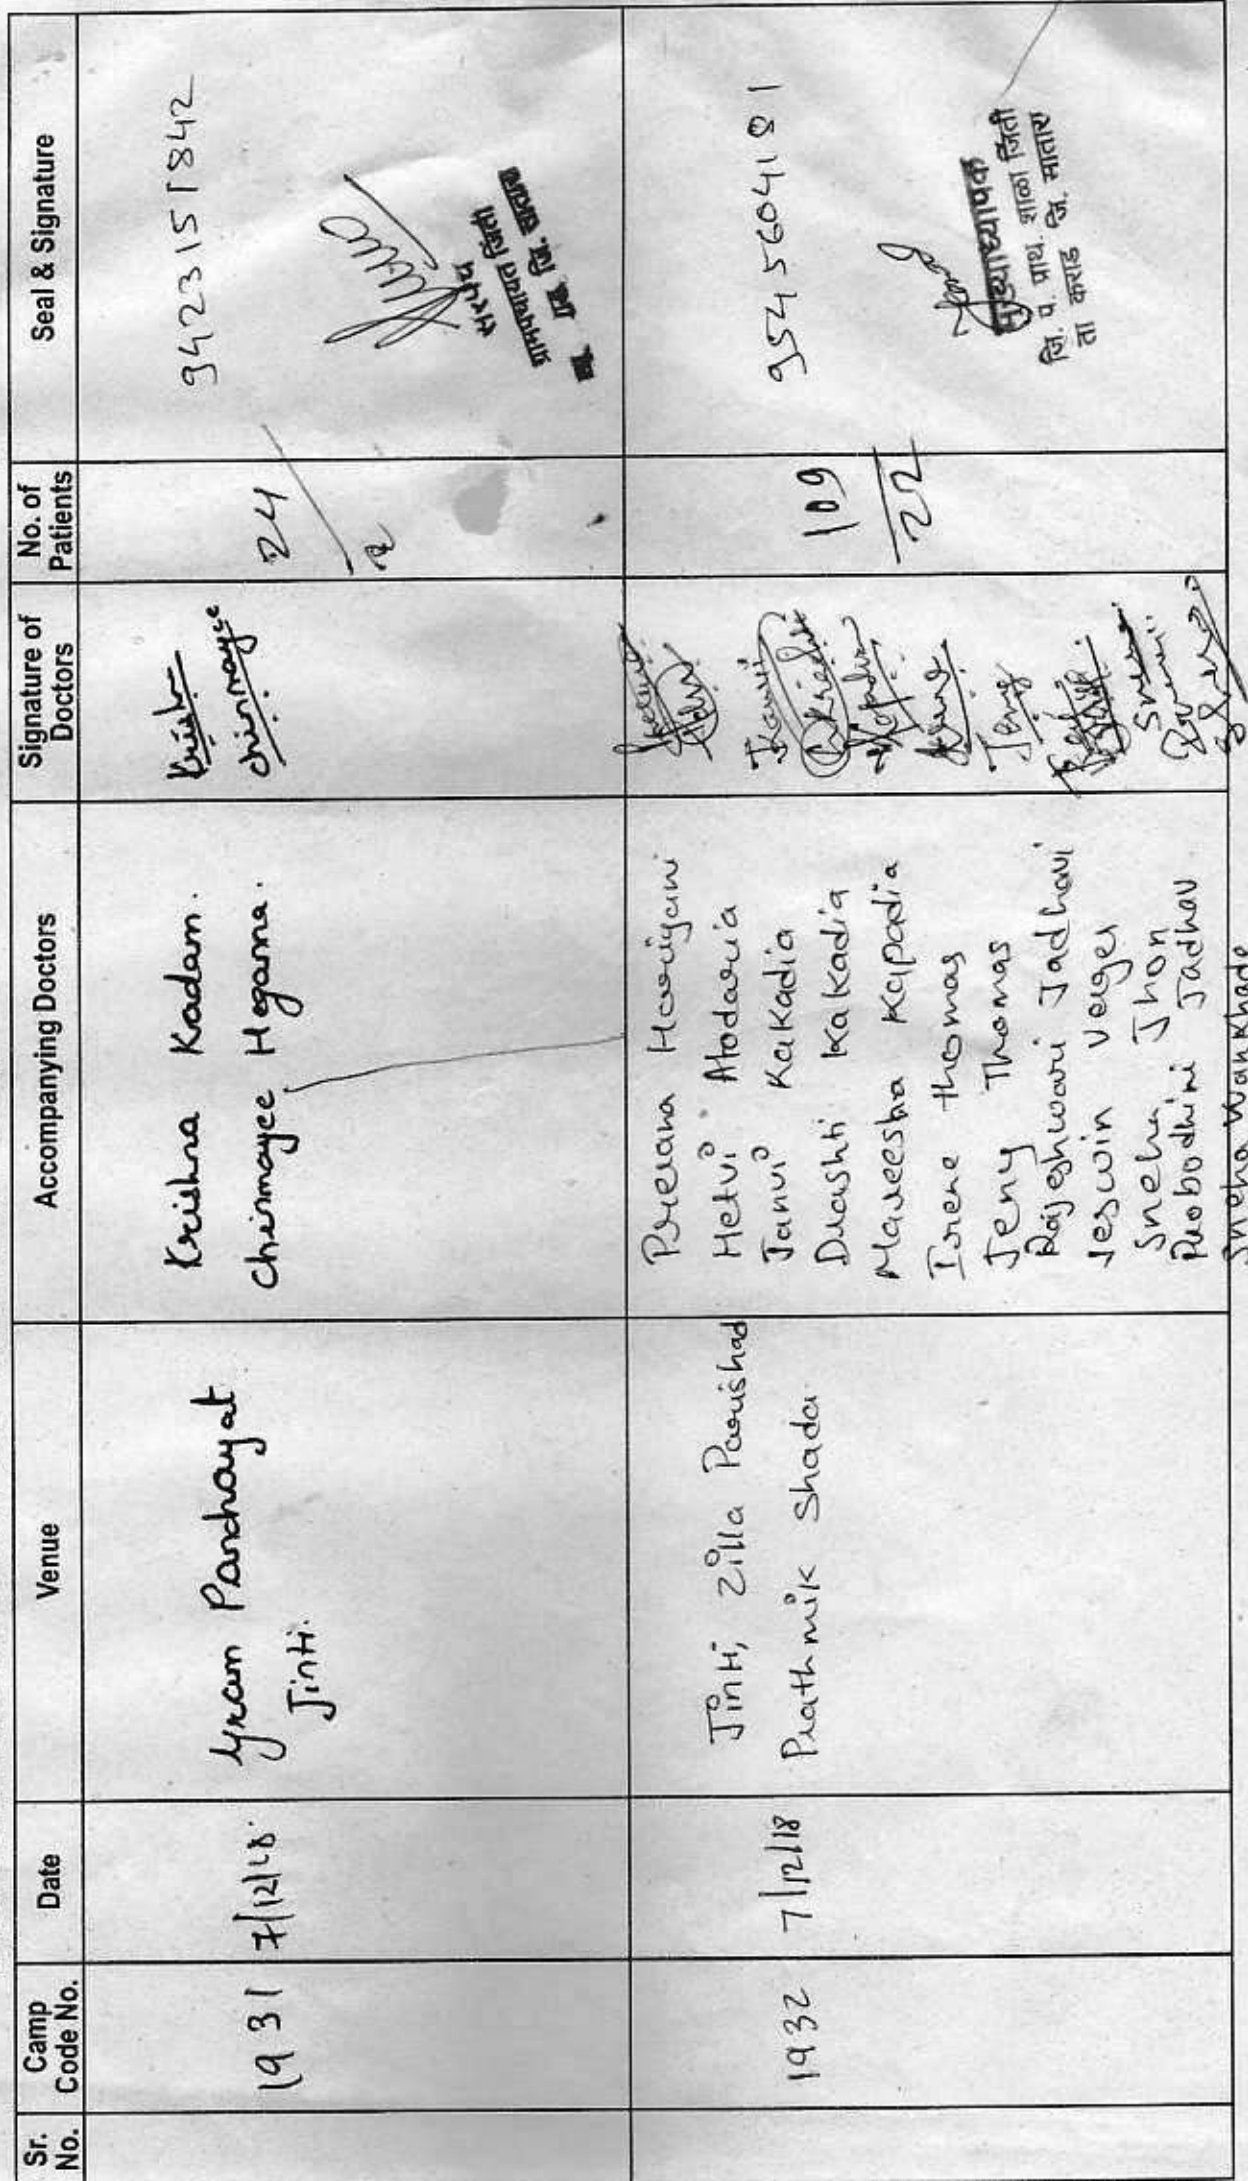 Sr. No.
Camp Code No.
Date
Venue
Accompanying Doctors
Signature of Doctors
No. of Patients
Seal & Signature
1931
7/12/18.
Gram Panchayat
Jinti.
Krishna Kadam.
Chinmayee Hegama.
Krishna
Chinmayee
24
2
9423151842
सरपंच
ग्रामपंचायत जिंती
1932
7/12/18
Jinti, Zilla Parishad
Prathmik Shada
Prerana Harijan
Helvi Atodaria
Janvi Kakadia
Drashti Kakadia
Mareesha Kapadia
Irene thomas
Jeny Thomas
Rajeshwari Jadhavi
Jeswin Varger
Sneha Jhon
Probodhini Jadhav
Sneha Wankhade
Janvi
Jeny
109
22
9545604181
मुख्याध्यापक
जि. प. प्राथ. शाळा जिंती
ता कराड जि. सातारा